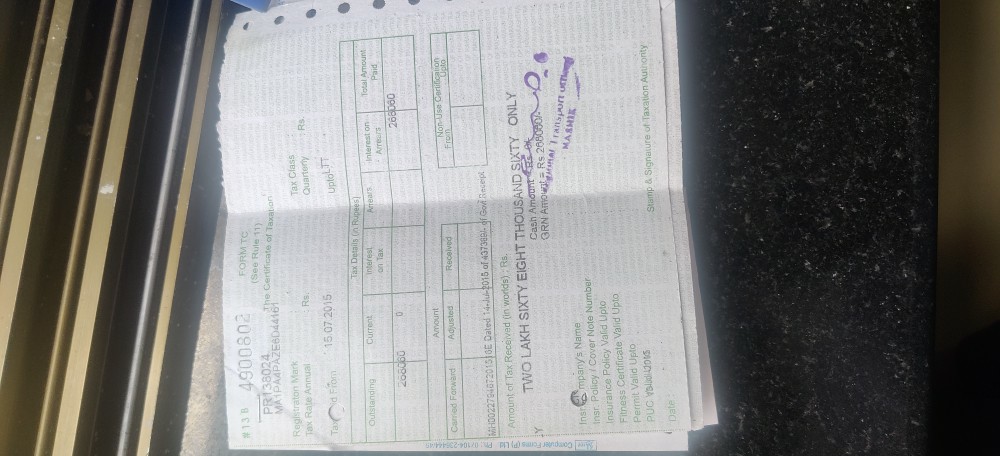 #13 B 4900802 FORM TC
(See Rule 11)
PR136024 The Certificate of Taxation
Registration Mark Tax Class
Tax Rate Annual : Rs. Quarterly Rs.
From : 15.07.2015 Upto LTT
Tax Details (in Rupees)
Outstanding Current Interest on Tax Arrears Interest on Arrears Total Amount Paid
268060 0 268060
Amount Non-Use Certification
Carried Forward Adjusted Received From Upto
Dated 14-Jul-2015 of Govt Receipt
Amount of Tax Received (in worlds) : Rs.
TWO LAKH SIXTY EIGHT THOUSAND SIXTY ONLY
Y Cash Amount
GRN Amount = Rs.268060/-
NASHIK
Company's Name
Insr. Policy / Cover Note Number
Insurance Policy Valid Upto
Fitness Certificate Valid Upto
Permit Valid Upto
PUC
Date : Stamp & Signature of Taxation Authority
Computer Forms (P) Ltd.